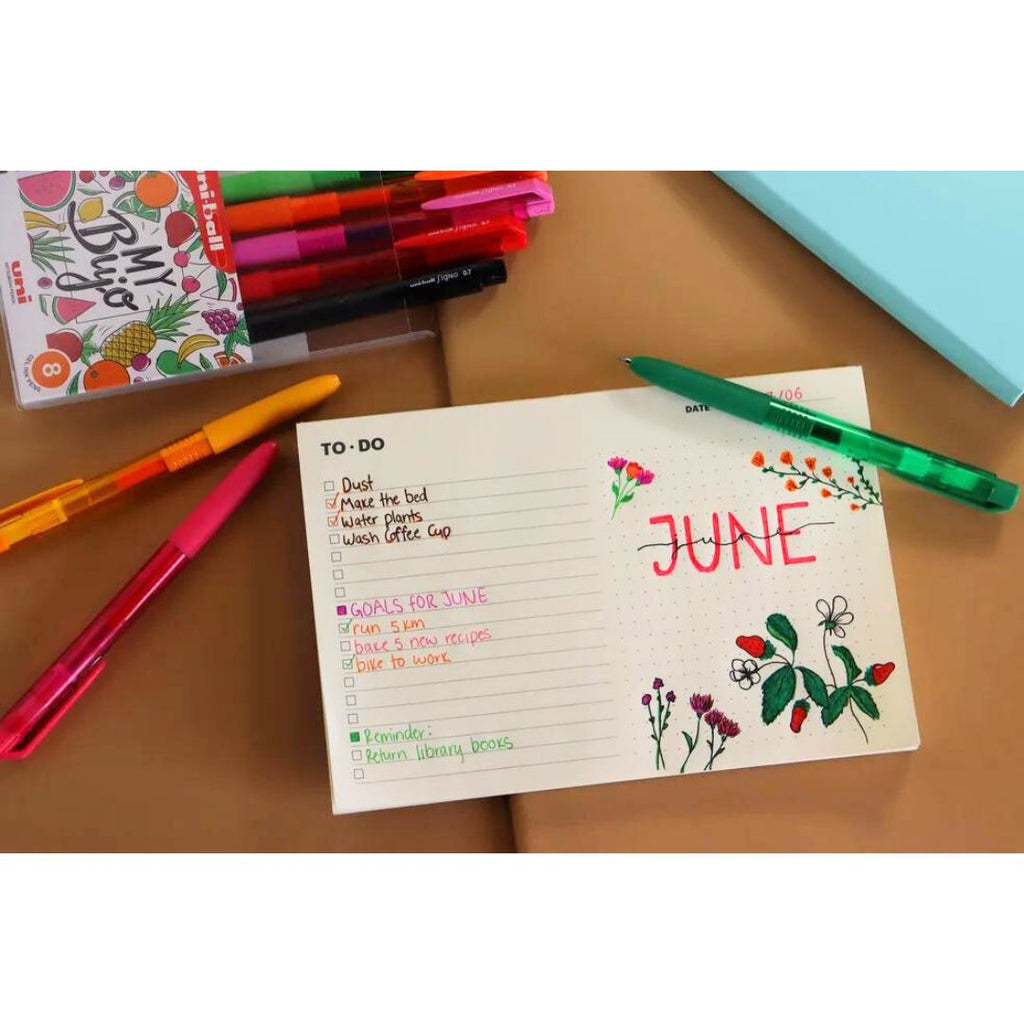 uni-ball
MY
Bujo
uni
8
GEL INK PENS
SIGNO 0.7
TO·DO
DATE
/06
Dust
Make the bed
Water plants
Wash Coffee Cup
GOALS FOR JUNE
run 5 km
bake 5 new recipes
bike to work
Reminder:
Return library books
JUNE
june